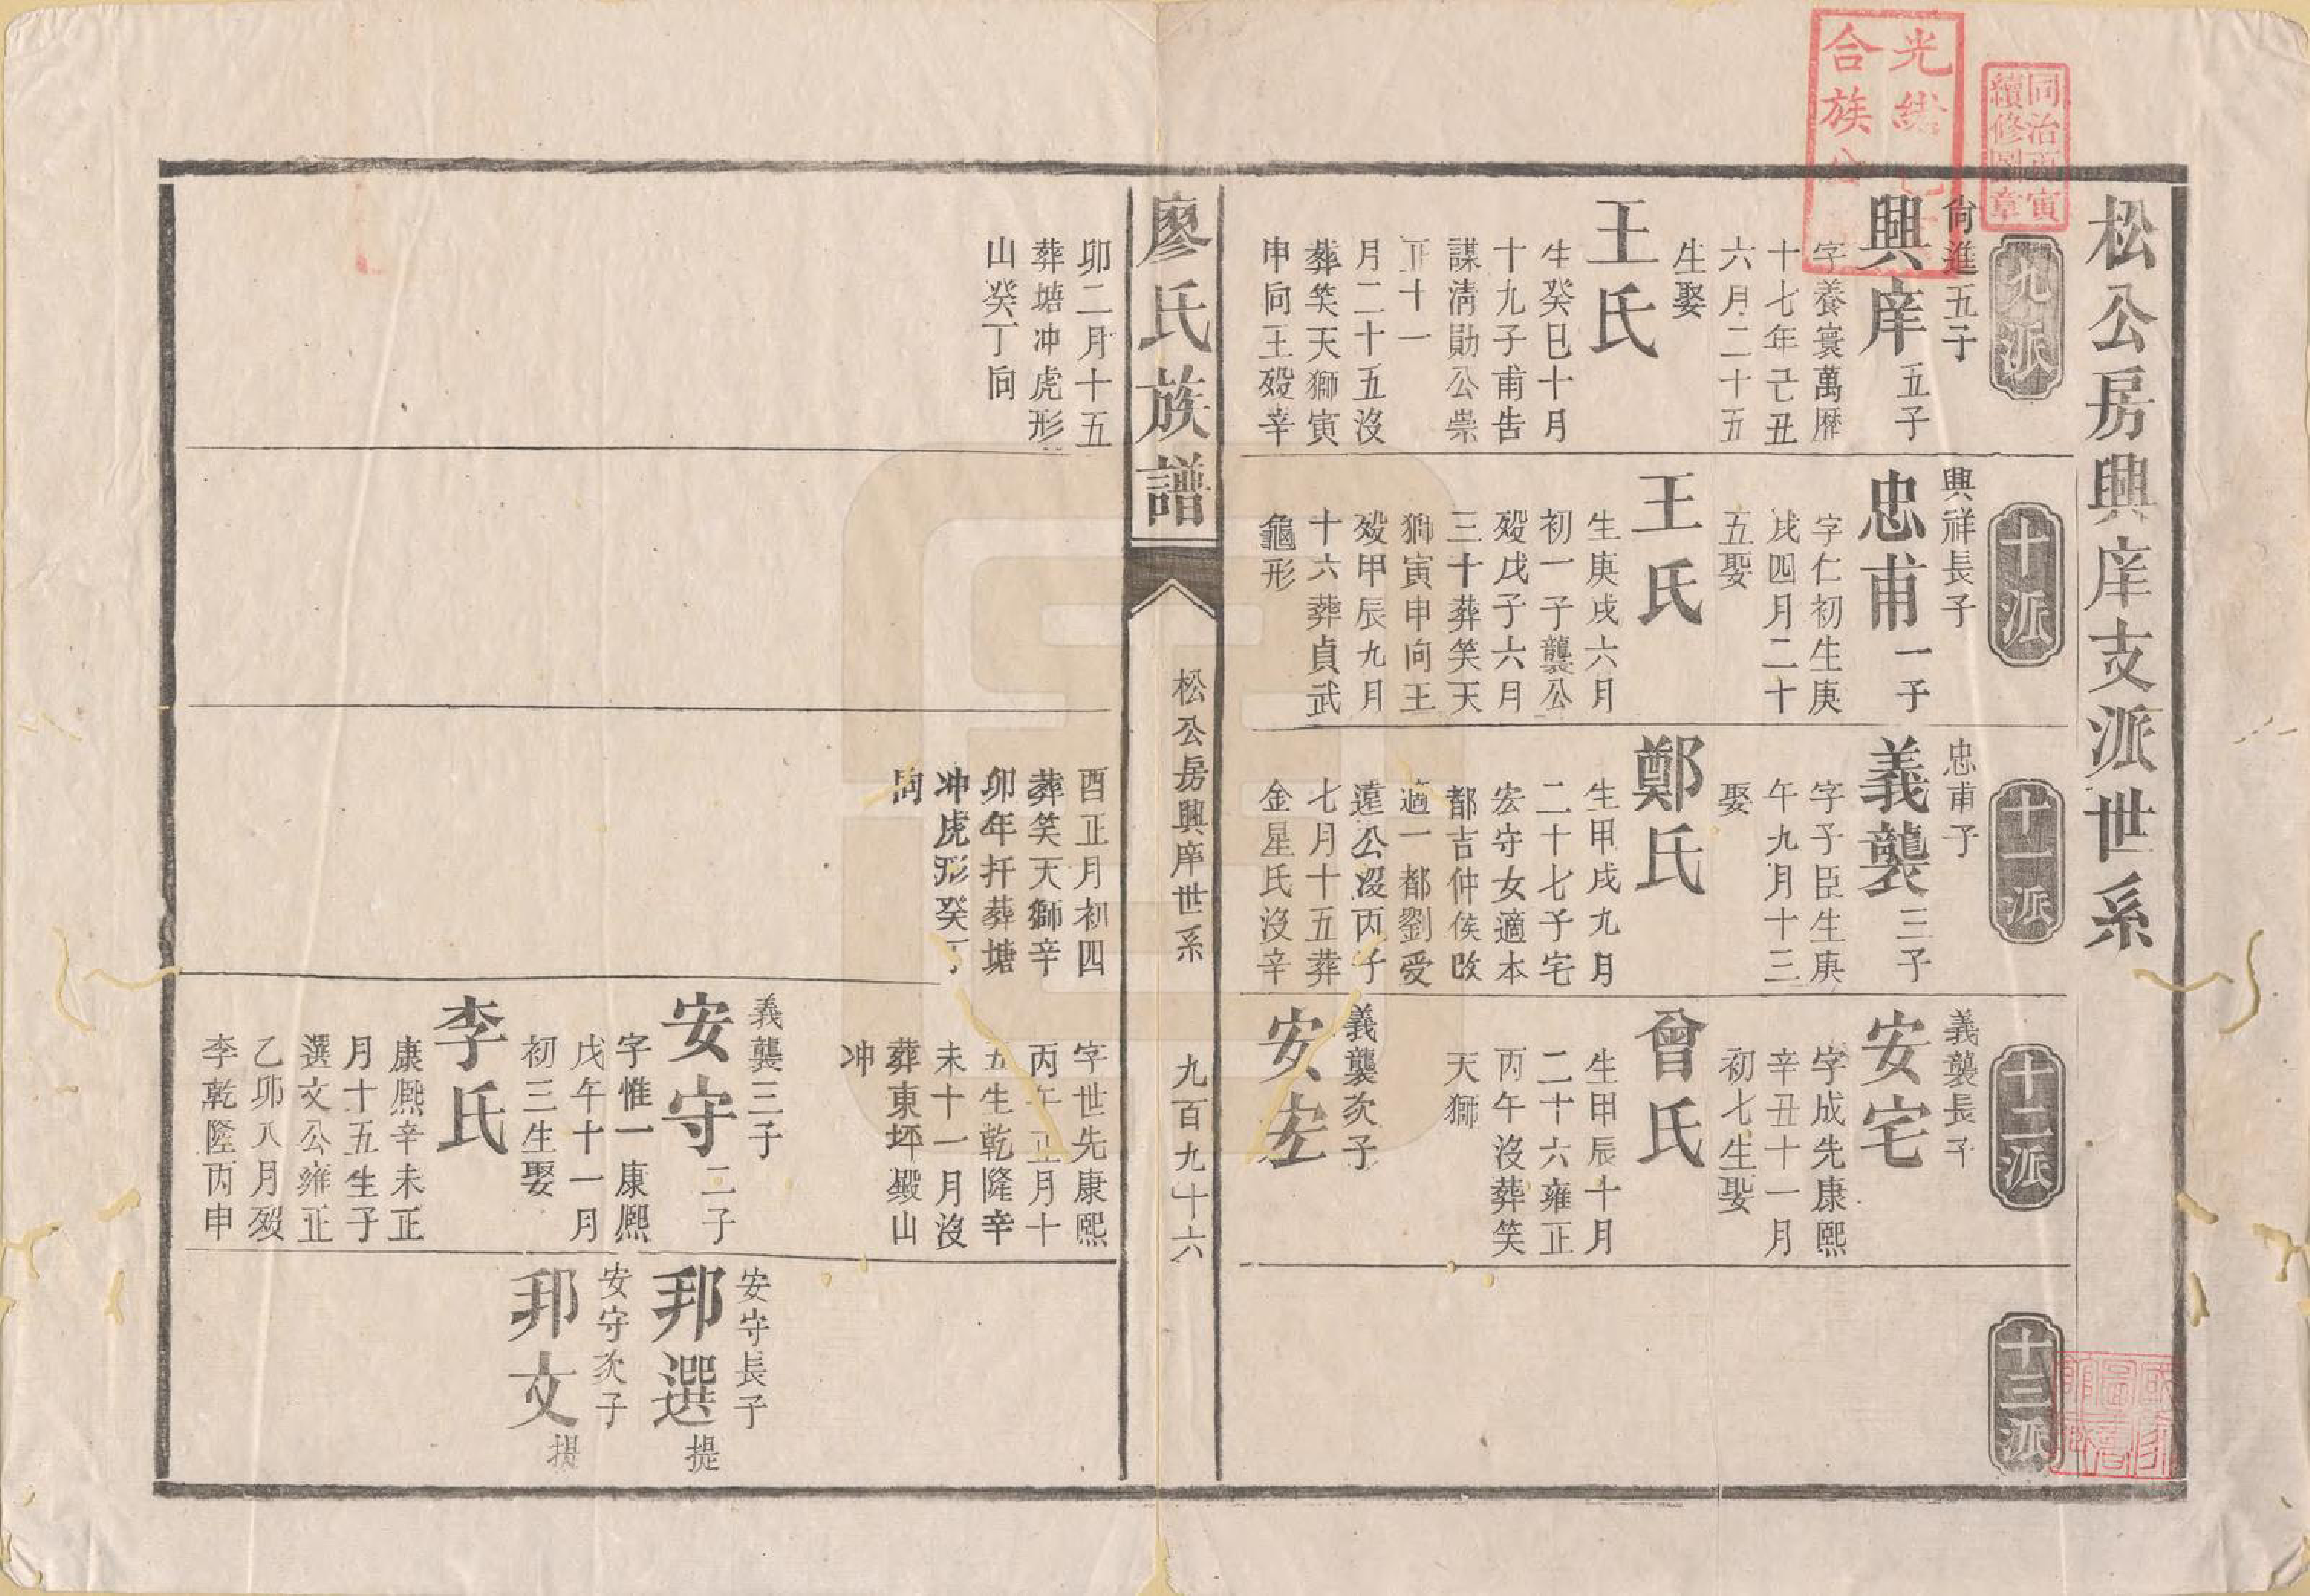 松公房興庠支派世系
同治丙寅
續修圖章
光緒
合族公
九派
尙進五子
興庠五子
字養寰萬歷
十七年己丑
六月二十五
生娶
王氏
生癸巳十月
十九子甫吿
謀淸勛公崇
正十一
月二十五沒
葬笑天獅寅
申向王歿辛
十派
興祥長子
忠甫一子
字仁初生庚
戌四月二十
五娶
王氏
生庚戌六月
初一子襲公
歿戊子六月
三十葬笑天
獅寅申向王
歿甲辰九月
十六葬貞武
龜形
十一派
忠甫子
義襲三子
字子臣生庚
午九月十三
娶
鄭氏
生甲戌九月
二十七子宅
宏守女適本
都吉仲侯改
適一都劉受
遠公沒丙子
七月十五葬
金星氏沒辛
十二派
義襲長子
安宅
字成先康熙
辛丑十一月
初七生娶
曾氏
生甲辰十月
二十六雍正
丙午沒葬笑
天獅
義襲次子
安宏
十三派
廖氏族譜
松公房興庠世系
九百九十六
卯二月十五
葬塘冲虎形
山癸丁向
酉正月初四
葬笑天獅辛
卯年扞葬塘
冲虎形癸丁
向
字世先康熙
丙午正月十
五生乾隆辛
未十一月沒
葬東坪嶽山
冲
義襲三子
安守二子
字惟一康熙
戊午十一月
初三生娶
李氏
康熙辛未正
月十五生子
選文公雍正
乙卯八月歿
李乾隆丙申
安守長子
邦選提
安守次子
邦文提